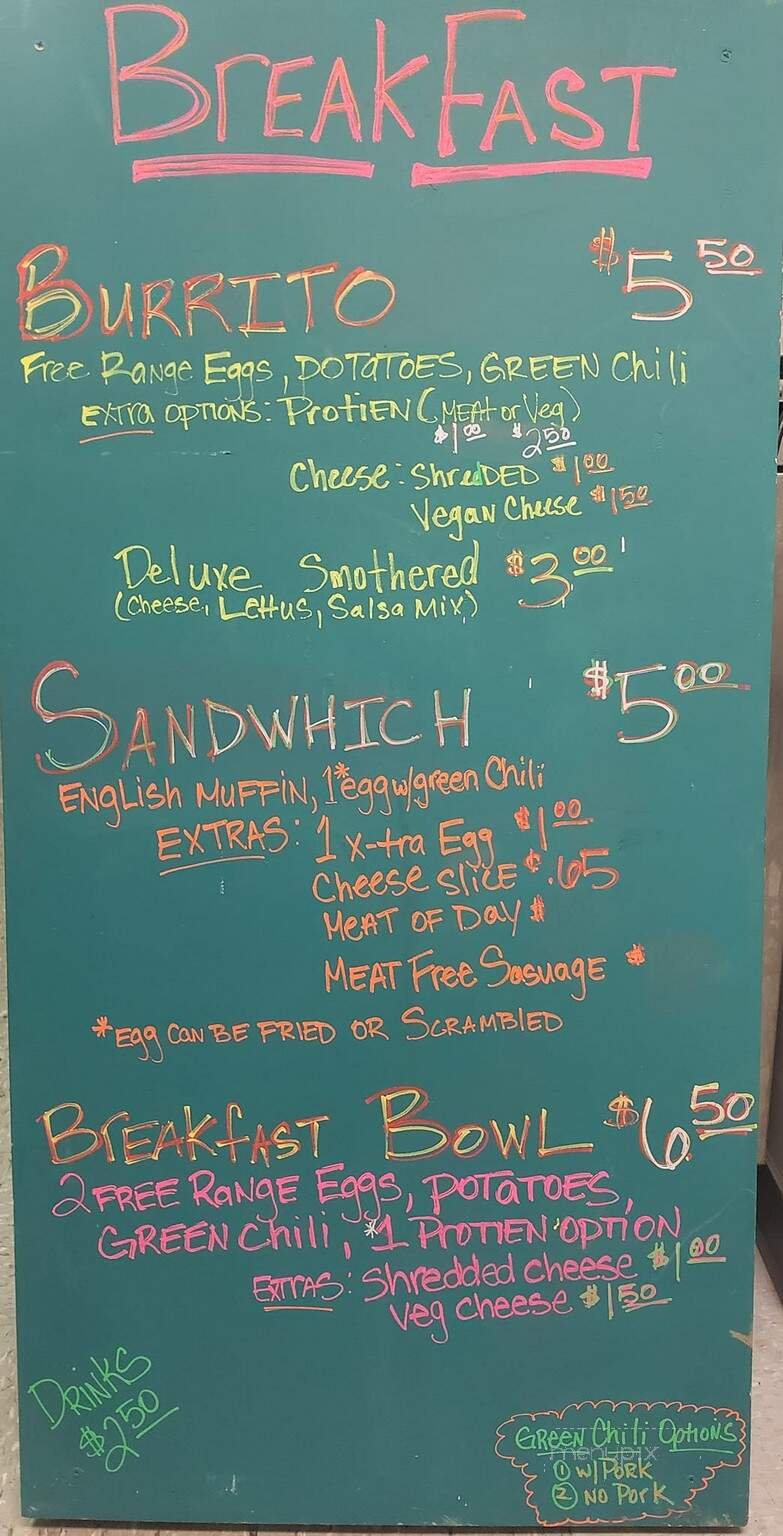 BreakFast
Burrito $5 50
Free Range Eggs, POTATOES, GREEN Chili
EXtra OPTIONS: ProtiEN (MEAT or Veg)
$1 00 $2 50
Cheese: ShredDED $1 00
Vegan Cheese $1 50
Deluxe Smothered $3 00
(Cheese, Lettus, Salsa Mix)
SANDWHICH $5 00
ENGLisH MuFFiN, 1*egg w/green Chili
EXTRAS: 1 x-tra Egg $1 00
Cheese slice $.65
MeAT OF Day $
MEAT Free Sasuage $
*Egg CAN BE FRIED OR SCRAMBLED
BreakfAST BOWL $6 50
2 FREE RANGE Eggs, POTATOES,
GREEN Chili, *1 PROTIEN OPTION
EXTrAS: Shredded cheese $1 00
Veg cheese $1 50
DRINKS
$2 50
GREEN Chili OPTIONS
menupix
① w/PORK
② NO PORK